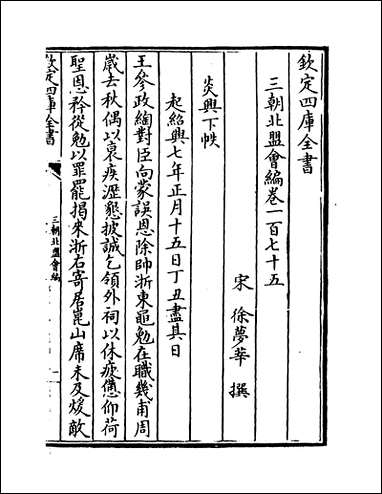 欽定四庫全書
三朝北盟會編卷一百七十五
宋 徐夢莘 撰
炎興下帙
起紹興七年正月十五日丁丑盡其日
王參政綯對臣向蒙誤恩除帥浙東黽勉在職幾甫周
歲去秋偶以衰疾瀝懇披誠乞領外祠以休疲憊仰荷
聖恩矜從勉以罪罷揭來浙右寄居崑山席未及煖敵
欽定四庫全書
三朝北盟會編
一